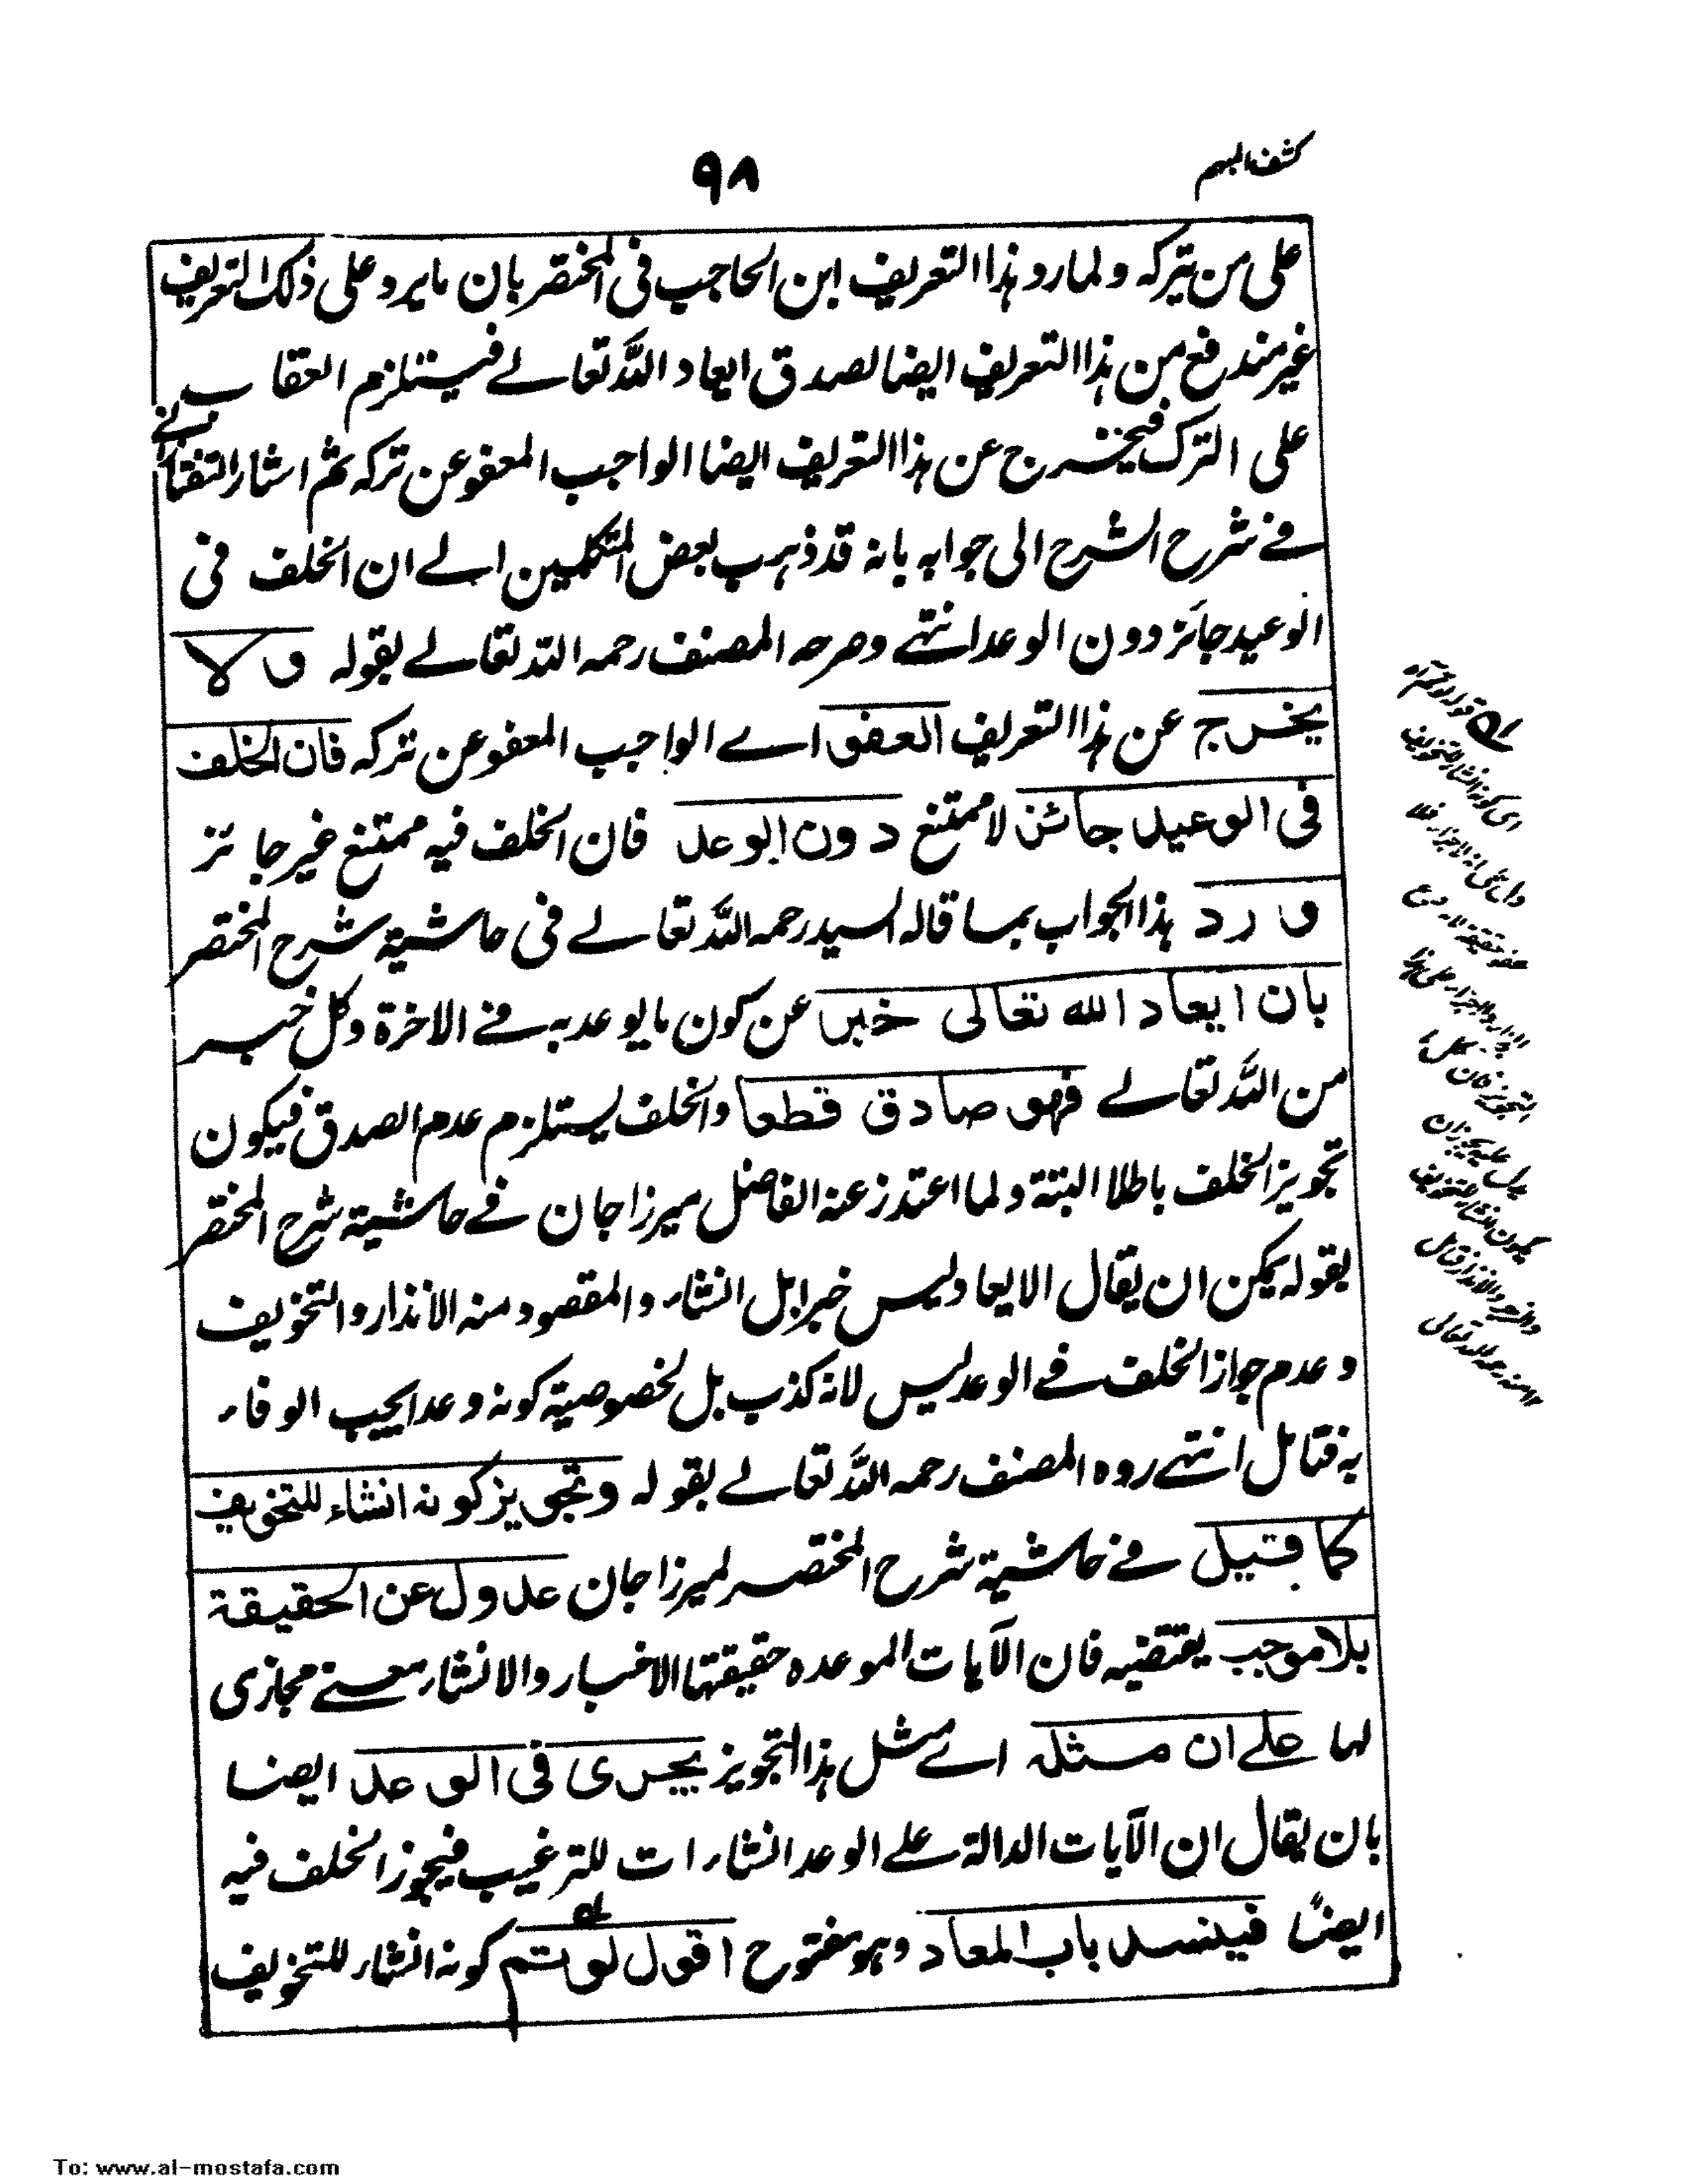 كشف المبهم
٩٨
على من تيركه ولما رد هذا التعريف ابن الحاجب فى المختصر بان ما يرد على ذلك التعريف
غير مندفع من هذا التعريف ايضا لصدق ايعاد الله تعالے فيستلزم العقاب
على الترك فيخرج عن هذا التعريف ايضا الواجب المعفو عن تركه ثم اشار التفتازانے
فے شرح الشرح الى جوابه بانه قد ذهب بعض المتكلمين الے ان الخلف فى
الوعيد جائز دون الوعد انتهے وصرحه المصنف رحمه الله تعالے بقوله ولا
يخرج عن هذا التعريف العفو اے الواجب المعفو عن تركه فان الخلف
فى الوعيد جائز لا ممتنع دون الوعد فان الخلف فيه ممتنع غير جائز
ورد هذا الجواب بما قاله السيد رحمه الله تعالے فى حاشية شرح المختصر
بان ايعاد الله تعالى خبر عن كون ما يوعد به فے الاخرة وكل خبر
من الله تعالے فهو صادق قطعا والخلف يستلزم عدم الصدق فيكون
تجويز الخلف باطلا البتة ولما اعتذر عنه الفاضل ميرزا جان فے حاشية شرح المختصر
بقوله يمكن ان يقال الايعاد ليس خبرا بل انشاء والمقصود منه الانذار والتخويف
وعدم جواز الخلف فے الوعد ليس لانه كذب بل لخصوصية كونه وعدا يجب الوفاء
به فتامل انتهے رده المصنف رحمه الله تعالے بقوله وتجويز كونه انشاء للتخويف
كما قيل فے حاشية شرح المختصر لميرزا جان عدول عن الحقيقة
بلا موجب يقتضيه فان الآيات الموعده حقيقتها الاخبار والانشاء معنے مجازى
لها علے ان مثله اے مثل هذا التجويز يجرى فى الوعد ايضا
بان يقال ان الآيات الدالة علے الوعد انشاءات للترغيب فيجوز الخلف فيه
ايضاً فينسد باب المعاد وهو مفتوح اقول لو تم كونه انشاء للتخويف
قوله لو تم اه
اى كونه انشاء للتخويف
يدل عليه يجوز ان
يكون انشاء للتخويف
والزجر والانذار فتامل
١٢ منه رحمه الله تعالى
To: www.al-mostafa.com